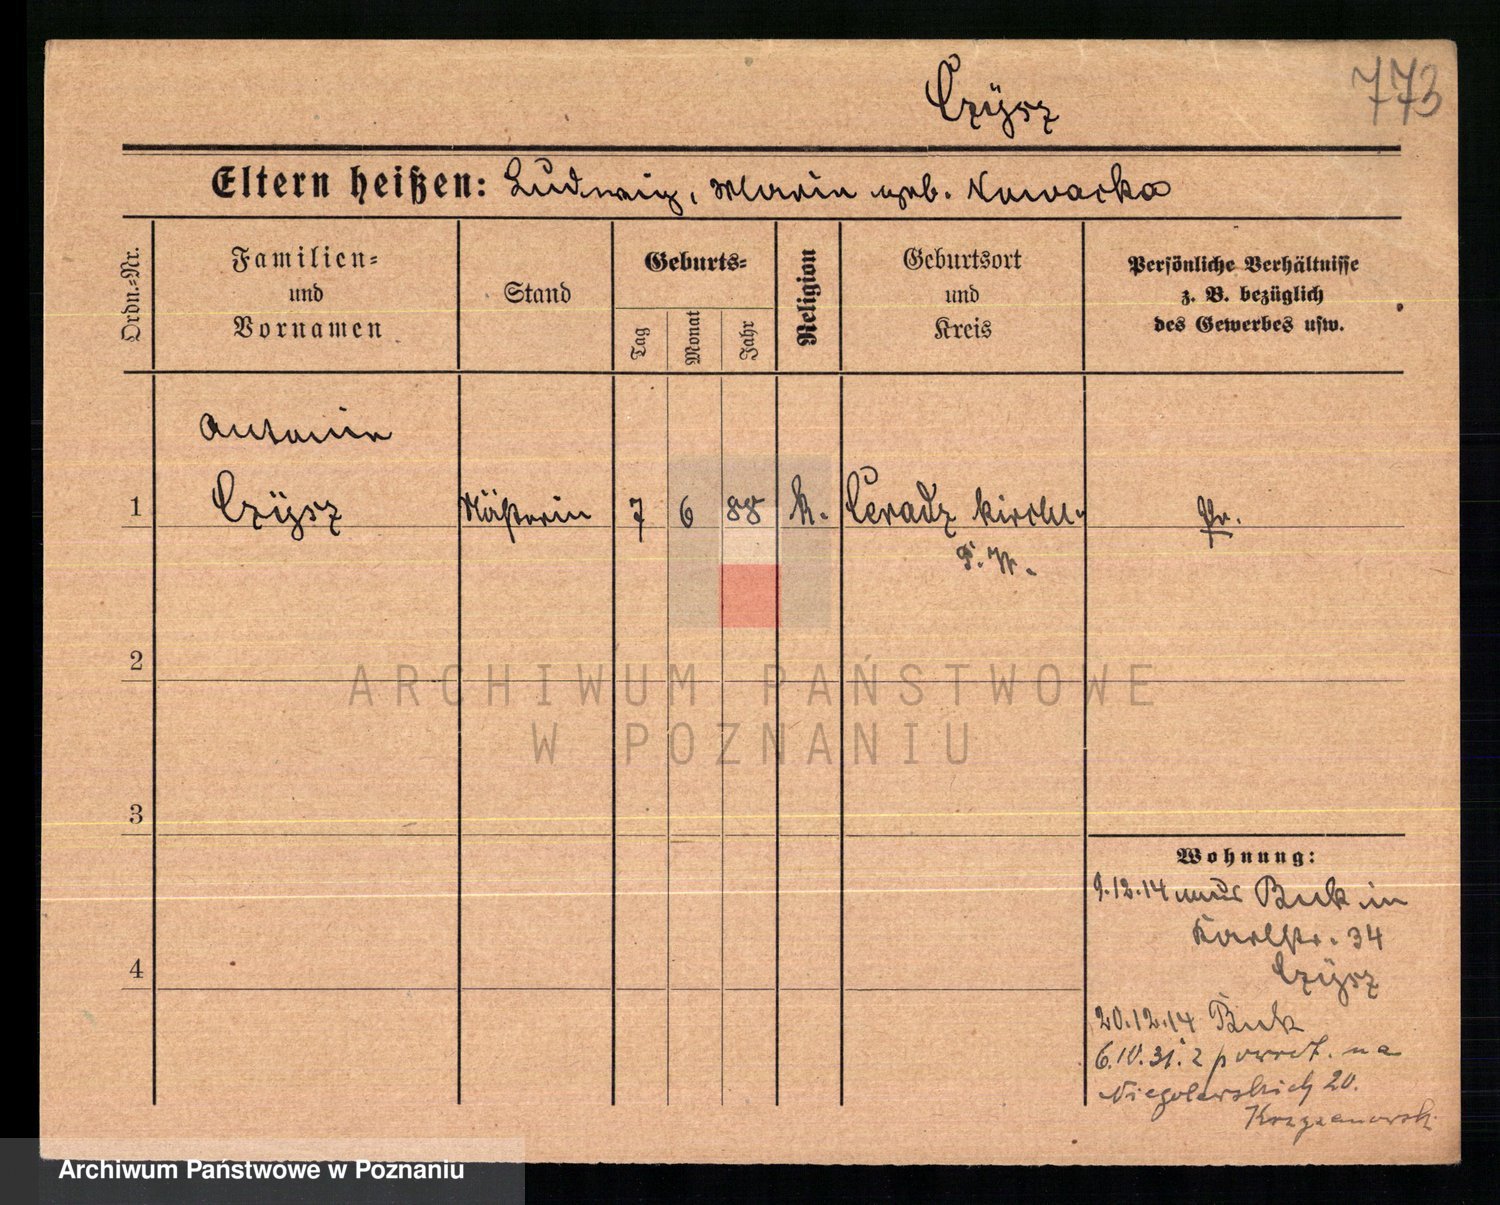 773
Czÿsz
Eltern heißen: Ludwig, Maria geb. Nowacka
Ordn.-Nr.
Familien-
und
Vornamen
Stand
Geburts-
Tag
Monat
Jahr
Religion
Geburtsort
und
Kreis
Persönliche Verhältnisse
z. B. bezüglich
des Gewerbes usw.
Antonie
1 Czÿsz Näherin 7 6 88 k. Ceradz kirchl.
P. W. Pr.
2
ARCHIWUM PAŃSTWOWE
W POZNANIU
3
Wohnung:
9.12.14 aus Buk in
Karlstr. 34
4
Czÿsz
20.12.14 Buk
6.IV.31. z powrot. na
Niegolewskich 20.
Krzyżanowsk.
Archiwum Państwowe w Poznaniu